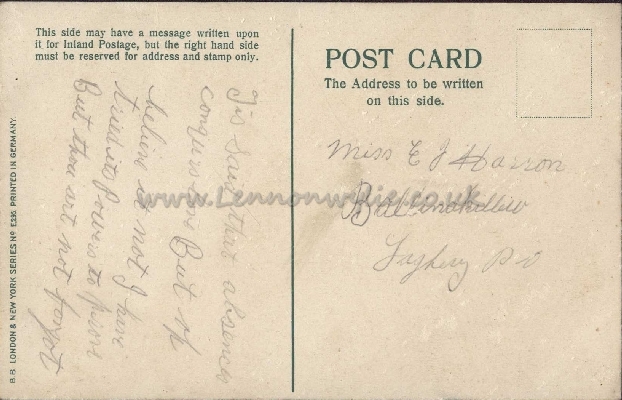 This side may have a message written upon
it for Inland Postage, but the right hand side
must be reserved for address and stamp only.
'Tis said that absence
conquers love But oh
believe it not I have
tried its Powers to prove
But thou art not forgot
B. B. LONDON & NEW YORK SERIES Nº E395 PRINTED IN GERMANY.
POST CARD
The Address to be written
on this side.
Miss E J Harron
www.Lennonwylie.co.uk
P O